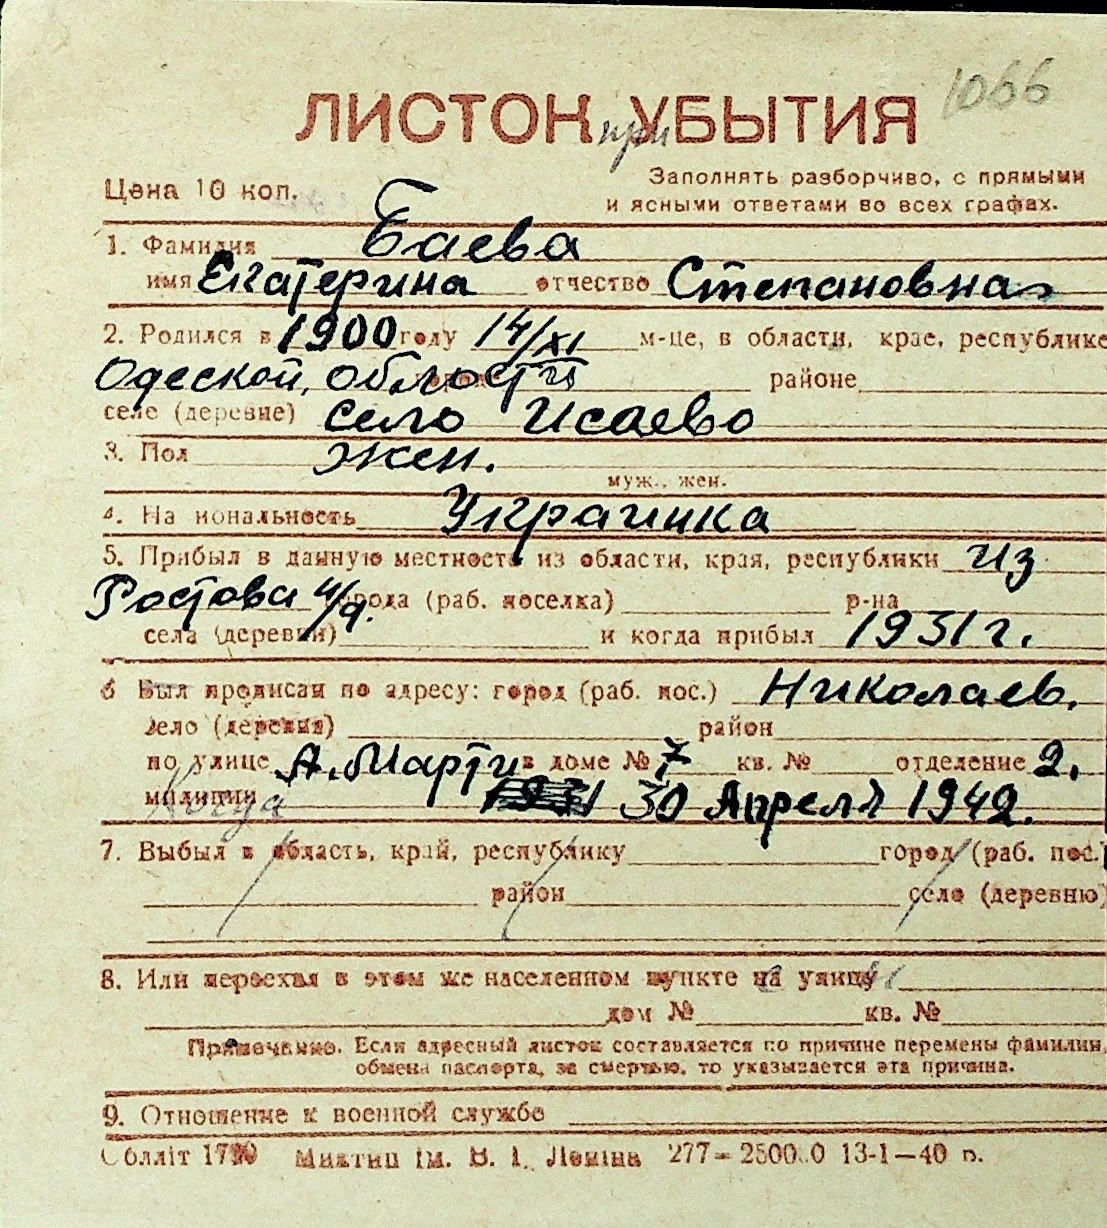 1066
ЛИСТОК при УБЫТИЯ
Цена 10 коп.
Заполнять разборчиво, с прямыми
и ясными ответами во всех графах.
1. Фамилия Баева
имя Екатерина отчество Степановна
2. Родился в 1900 году 14/XI м-це, в области, крае, республике
Одеской, области районе
селе (деревне) село Исаево
3. Пол жен.
муж., жен.
4. Национальность Украинка
5. Прибыл в данную местность из области, края, республики из
Ростова н/д. города (раб. поселка) р-на
села (деревни) и когда прибыл 1931 г.
6 Был прописан по адресу: город (раб. пос.) Николаев.
село (деревня) район
по улице А. Марти в доме № 7 кв. № отделение 2.
милиции Когда 30 Апреля 1942.
7. Выбыл в область, край, республику город (раб. пос.)
район село (деревню)
8. Или переехал в этом же населенном пункте на улицу
дом № кв. №
Примечание. Если адресный листок составляется по причине перемены фамилии,
обмена паспорта, за смертью, то указывается эта причина.
9. Отношение к военной службе
Облліт 1790 Миктип Ім. В. І. Леніна 277— 13-1—40 р.